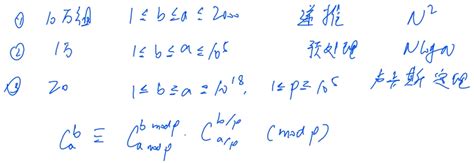 ① 10万组 1≤b≤a≤2000 递推 N²
② 1万 1≤b≤a≤10⁵ 预处理 NlogN
③ 20 1≤b≤a≤10¹⁸, 1≤p≤10⁵ 卢卡斯定理
C_a^b ≡ C_{a mod p}^{b mod p} · C_{a/p}^{b/p} (mod p)